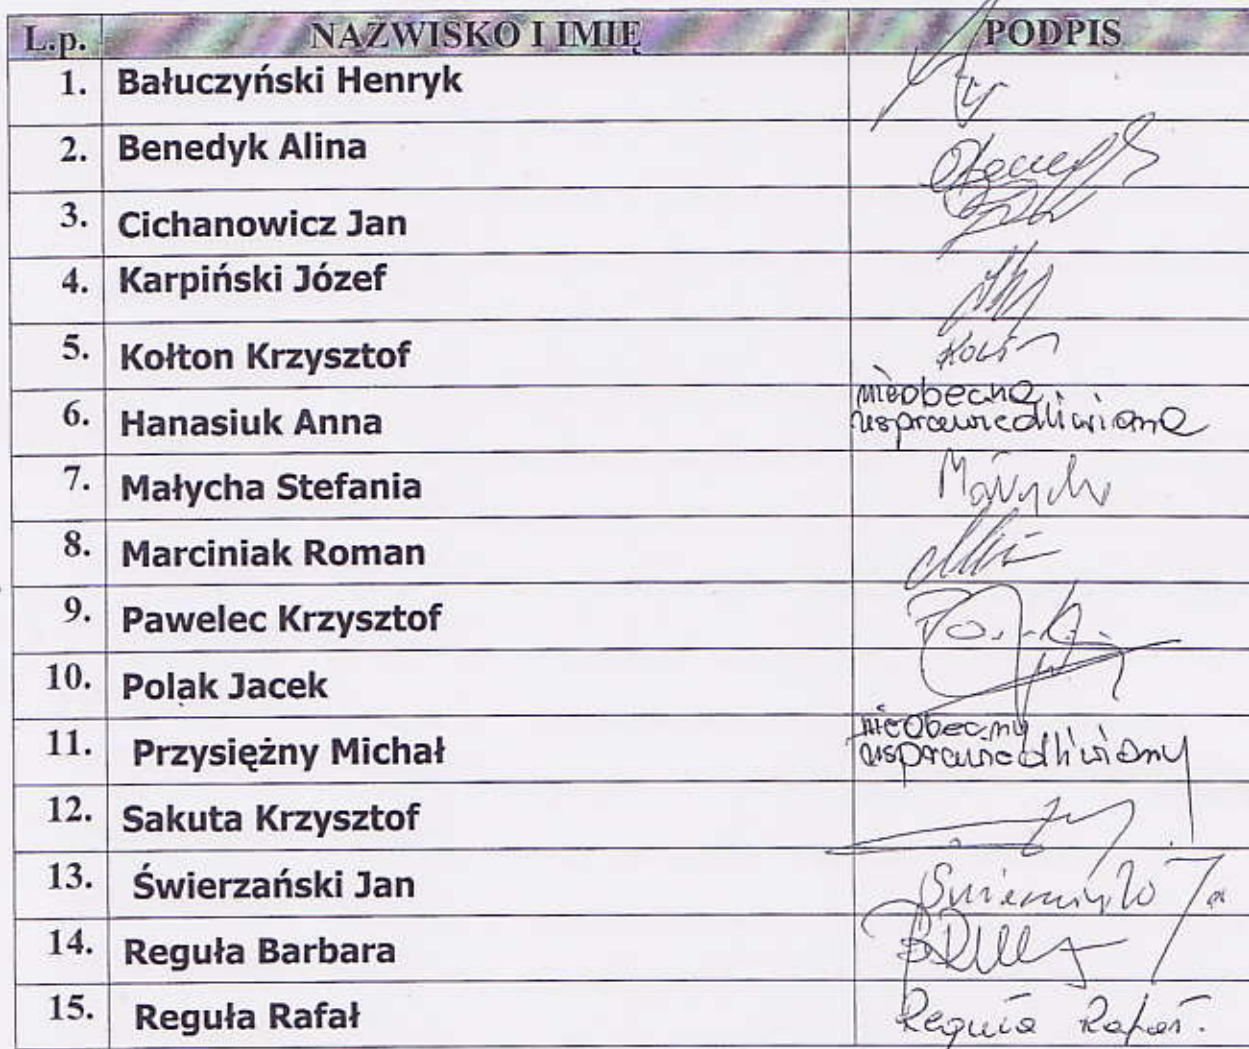 L.p. NAZWISKO I IMIĘ PODPIS
1. Bałuczyński Henryk
2. Benedyk Alina
3. Cichanowicz Jan
4. Karpiński Józef
5. Kołton Krzysztof
6. Hanasiuk Anna nieobecna
usprawiedliwiona
7. Małycha Stefania Małycha
8. Marciniak Roman
9. Pawelec Krzysztof
10. Polak Jacek
11. Przysiężny Michał nieobecny
usprawiedliwiony
12. Sakuta Krzysztof
13. Świerzański Jan
14. Reguła Barbara
15. Reguła Rafał Reguła Rafał.